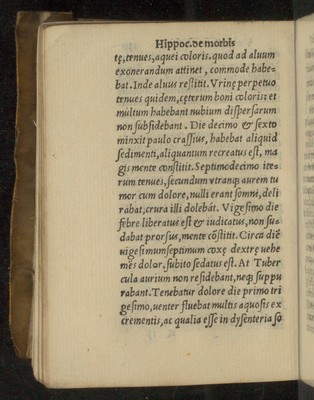 Hippoc. de morbis
tę, tenues, aquei coloris. quod ad aluum
exonerandum attinet, commode habe-
bat. Inde aluus restitit. Vrinę perpetuo
tenues quidem, cęterum boni coloris: et
multum habebant nubium dispersarum
non subsidebant. Die decimo & sexto
minxit paulo crassius, habebat aliquid
sedimenti, aliquantum recreatus est, ma
gis mente constitit. Septimodecimo ite=
rum tenues, secundum vtranque aurem tu
mor cum dolore, nulli erant somni, deli
rabat, crura illi dolebāt. Vigesimo die
febre liberatus est & iudicatus, non su=
dabat prorsus, mente cōstitit. Circa diē
uigesimumseptimum coxę dextrę uehe
mēs dolor, subito sedatus est. At Tuber
cula aurium non residebant, neque suppu
rabant. Tenebatur dolore die primo tri
gesimo, uenter fluebat multis aquosis ex
crementis, ac qualia esse in dysenteria so